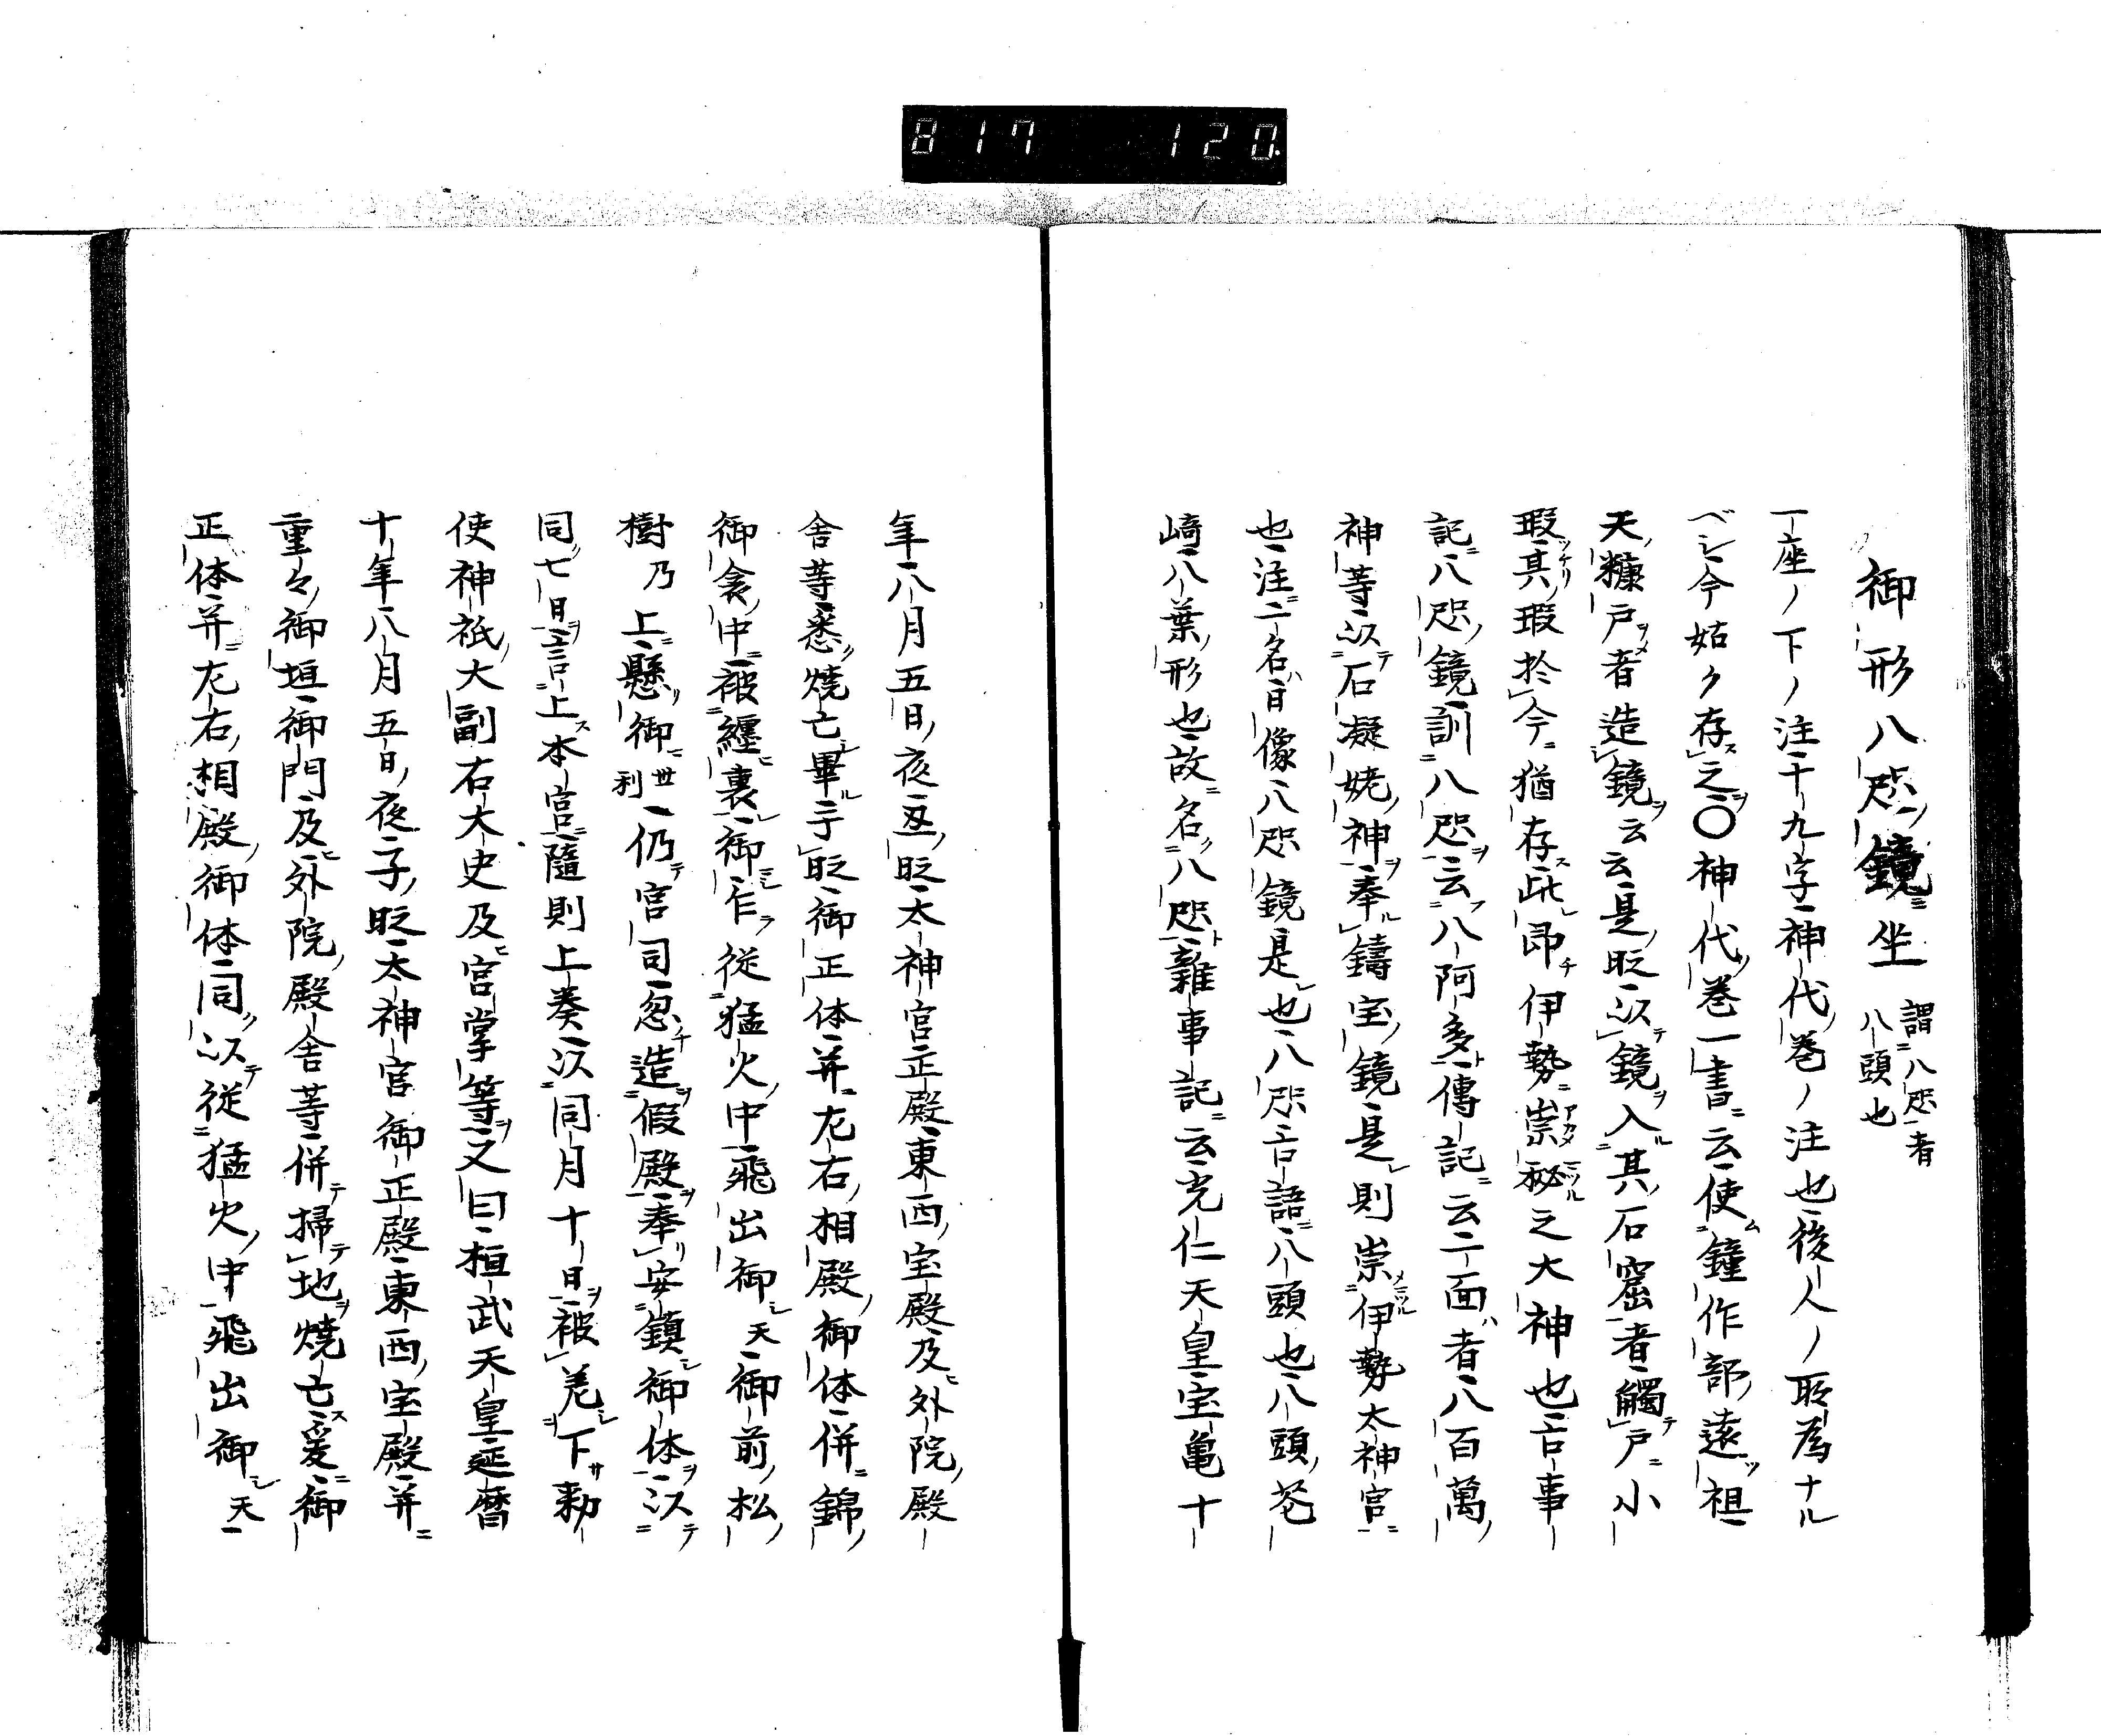 817 120
御形八咫鏡坐 謂八咫者
八頭也
一座ノ下ノ注十九字神代巻ノ注也後人ノ所為ナル
ベシ今姑ク存之〇神代巻一書云使鏡作部遠祖
天糠戸者造鏡云云是時以鏡入其石窟者觸戸小
瑕其瑕於今猶存此即伊勢崇秘之大神也言事
記八咫鏡訓八咫云八阿多傳記云二面者八百萬
神等以石凝姥神奉鑄宝鏡是則崇伊勢太神宮
也注二名曰像八咫鏡是也八咫古語八頭也八頭花
崎八葉形也故名八咫雜事記云光仁天皇宝亀十
年八月五日夜丑時太神宮正殿東西宝殿及外院殿
舎等悉燒亡畢于時御正体并左右相殿御体併錦
御衾中被纏裹御乍従猛火中飛出御天御前松
樹乃上懸御世利仍官司忽造假殿奉安鎮御体以
同七日言上本宮隨則上奏以同月十日被差下勅
使神祇大副右大史及宮掌等又曰桓武天皇延暦
十年八月五日夜子時太神宮御正殿東西宝殿并
重々御垣御門及外院殿舎等併掃地燒亡爰御
正体并左右相殿御体同以従猛火中飛出御天